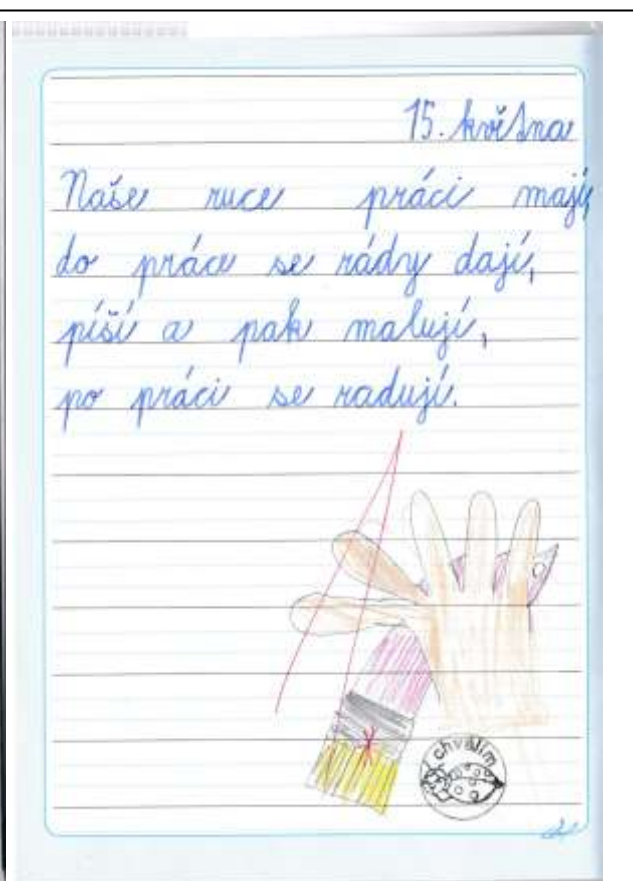 15. května
Naše ruce práci mají,
do práce se rády dají,
píší a pak malují,
po práci se radují.
chválím